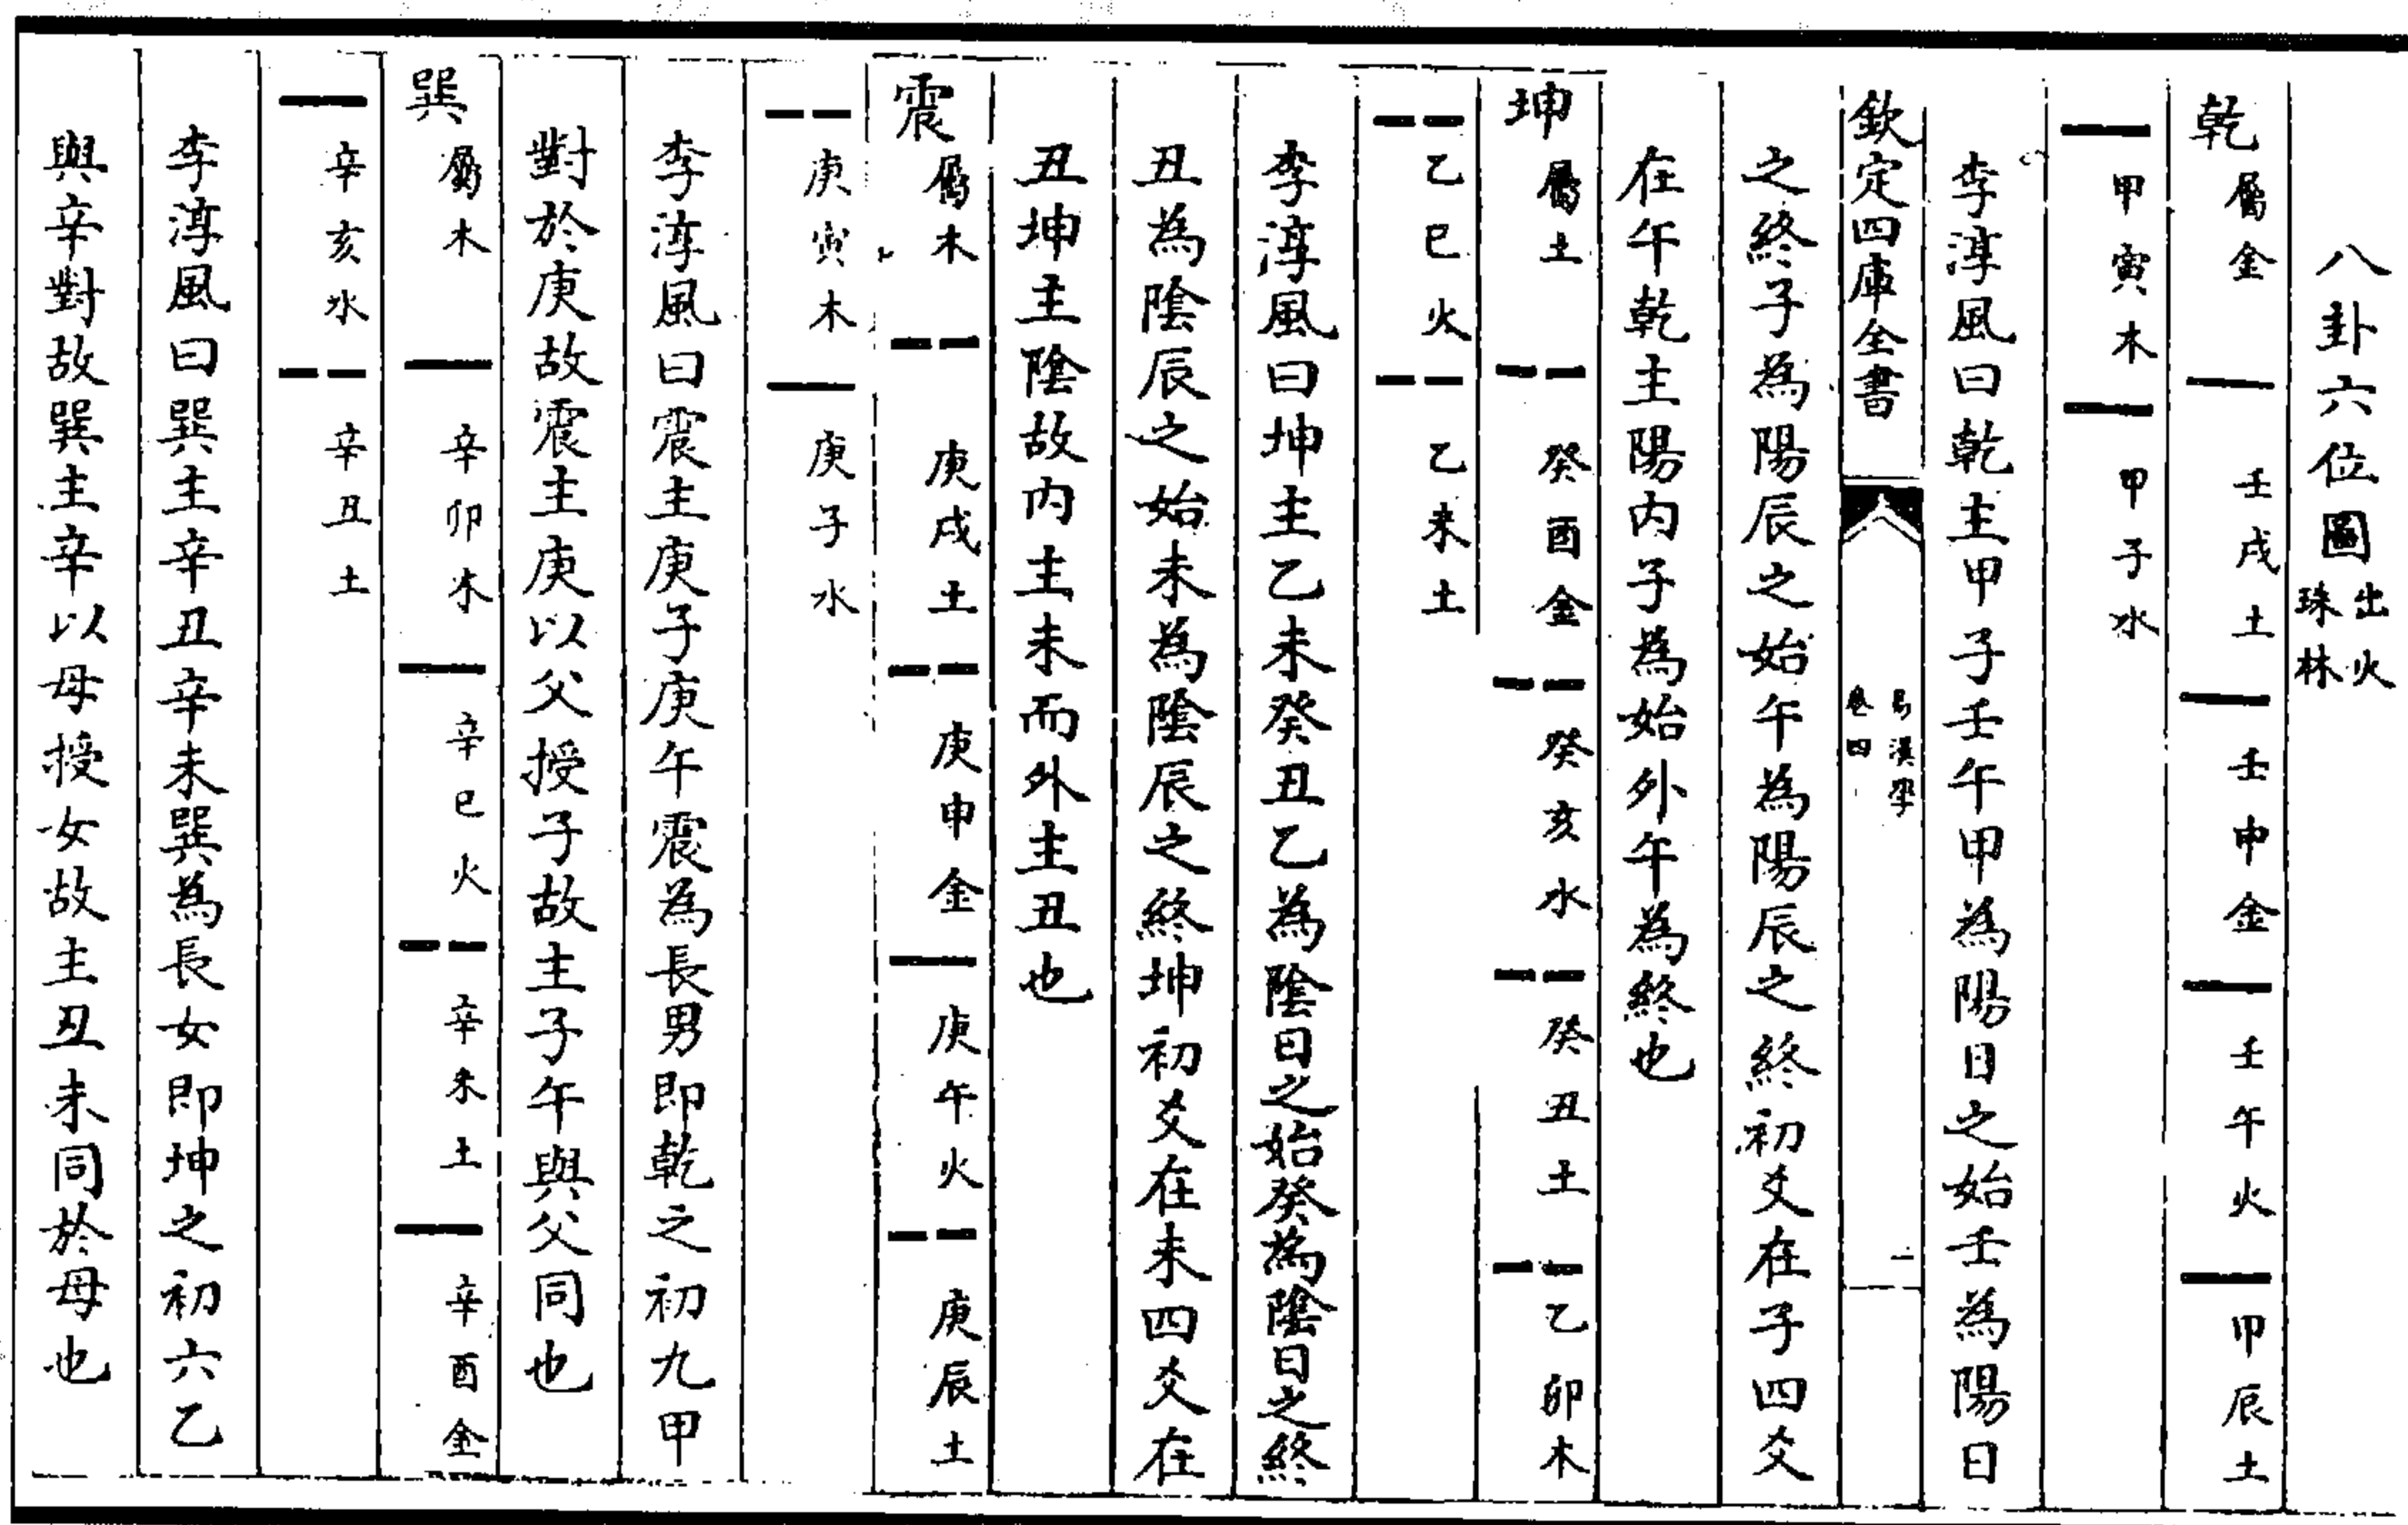 八卦六位圖出火珠林
乾屬金 壬戌土 壬申金 壬午火 甲辰土
甲寅木 甲子水
李淳風曰乾主甲子壬午甲為陽日之始壬為陽日
欽定四庫全書 易漢學 卷四 一
之終子為陽辰之始午為陽辰之終初爻在子四爻
在午乾主陽内子為始外午為終也
坤屬土 癸酉金 癸亥水 癸丑土 乙卯木
乙巳火 乙未土
李淳風曰坤主乙未癸丑乙為陰日之始癸為陰日之終
丑為陰辰之始未為陰辰之終坤初爻在未四爻在
丑坤主陰故内主未而外主丑也
震屬木 庚戌土 庚申金 庚午火 庚辰土
庚寅木 庚子水
李淳風曰震主庚子庚午震為長男即乾之初九甲
對於庚故震主庚以父授子故主子午與父同也
巽屬木 辛卯木 辛巳火 辛未土 辛酉金
辛亥水 辛丑土
李淳風曰巽主辛丑辛未巽為長女即坤之初六乙
與辛對故巽主辛以母授女故主丑未同於母也